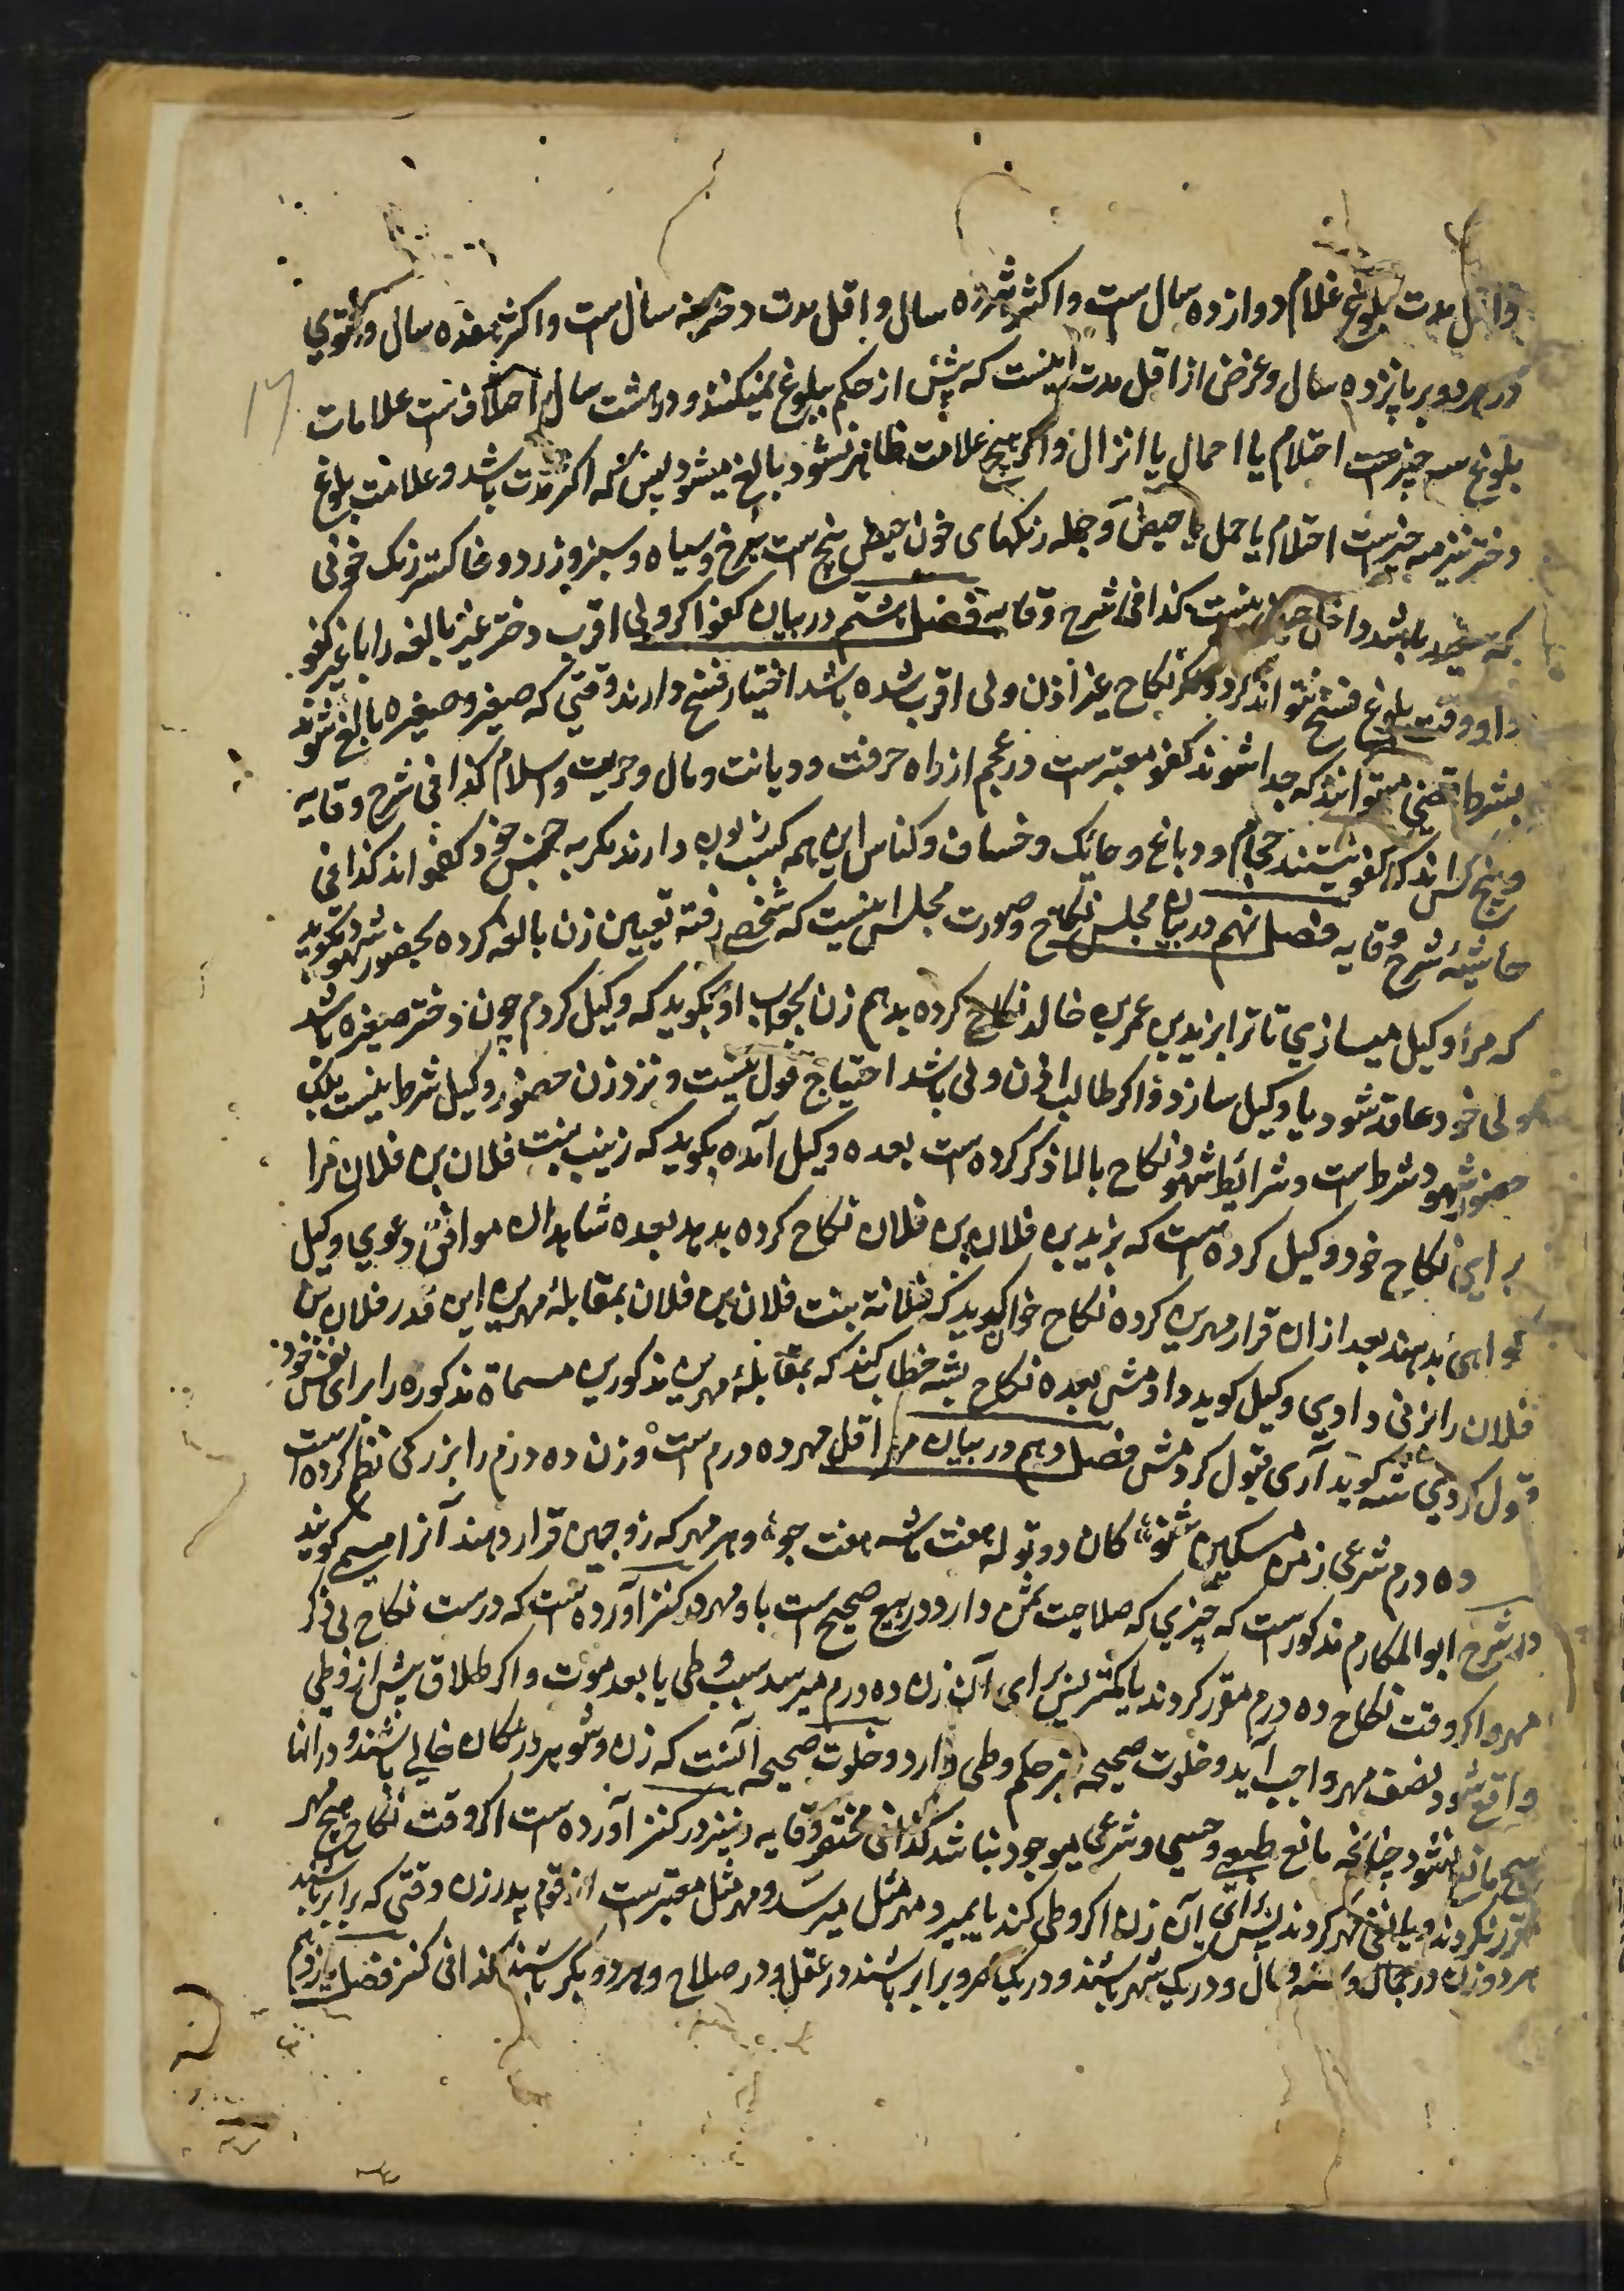 و اقل مدت بلوغ غلام دوازده سال ست و اکثر هژده سال و اقل مدت دختر نه سال ست و اکثر هفده سال و فتوی
در هر دو بر پانزده سال و غرض از اقل مدت اینست که پیش از حکم ببلوغ نمیکنند و در هشت سال اختلاف ست علامات
بلوغ سه چیزست احتلام یا احبال یا انزال و اگر هیچ علامت ظاهر نشود بالغ میشود پس که اکثر مدت باشد و علامت بلوغ
دختر نیز سه چیزست احتلام یا حمل یا حیض و جمله رنگهای خون حیض پنج ست سرخ و سیاه و سبز و زرد و خاکستر رنگ خونی
که سفید باشد داخل حیض نیست کذا فی شرح وقایه فصل هشتم در بیان کفو اگر ولی اقرب دختر غیر بالغه را با غیر کفو
داد وقت بلوغ فسخ نتواند کرد و گر نکاح غیر اذن ولی اقرب شده باشد اختیار فسخ دارند وقتی که صغیر و صغیره بالغ شوند
بشرط قضی میتوانند که جدا شوند کفو معتبرست در عجم از راه حرفت و دیانت و مال و حریت و اسلام کذا فی شرح وقایه
و پنج کس اند که کفو نیستند حجام و دباغ و حایک و خصاف و کناس این همه کسب زبون دارند مگر به جنس خود کفو اند کذا فی
حاشیه شرح وقایه فصل نهم در بیان مجلس نکاح و صورت مجلس اینست که شخصی رفته تعیین زن بالغه کرده بحضور شهود بگوید
که مرا وکیل میسازی تا ترا بزید بن عمر بن خالد نکاح کرده بدهم زن بجواب او بگوید که وکیل کردم چون دختر صغیره باشد
ولی خود عاقد شود یا وکیل سازد و اگر طالب اذن ولی باشد احتیاج قول نیست و نزد زن حضور وکیل شرط نیست بلکه
حضور شهود شرط ست و شرایط شهود نکاح بالا ذکر کرده ست بعده وکیل آمده بگوید که زینب بنت فلان بن فلان مرا
برای نکاح خود وکیل کرده ست که بزید بن فلان بن فلان نکاح کرده بدهد بعده شاهدان موافق دعوی وکیل
گواهی بدهند بعد ازان قرار مهرین کرده نکاح خوان گوید که فلانة بنت فلان بن فلان بمقابله مهرین این قدر فلان بن
فلان را بزنی دادی وکیل گوید دادمش بعده نکاح بشه خطاب کند که بمقابله مهرین مذکورین مسماة مذکوره را برای نفس خود
قبول کردی شه گوید آری قبول کردمش فصل دهم در بیان مهر اقل مهر ده درم ست وزن ده درم را بزرگی نظم کرده است
ده درم شرعی ز من مسکین شنو کان دو توله هفت ماشه هفت جو و هر مهر که زوجین قرار دهند آنرا مسمی گویند
در شرح ابو المکارم مذکورست که چیزی که صلاحیت ثمن دارد در بیع صحیح ست باو مهر در کنز آورده ست که درست نکاح بی ذکر
مهر و اگر وقت نکاح ده درم مقرر کردند یا کمتر پس برای آن زن ده درم میرسد بسبب وطی یا بعد موت و اگر طلاق پیش از وطی
واقع شود نصف مهر واجب آید و خلوت صحیحه نیز حکم وطی دارد و خلوت صحیحه آنست که زن و شوهر در مکان خالی باشند و در آنجا
هیچ مانع نشود چنانچه مانع طبعی و حسی و شرعی موجود نباشد کذا فی مختصر وقایه و نیز در کنز آورده ست اگر وقت نکاح هیچ مهر
مقرر نکردند و یا نفی مهر کردند پس برای آن زن اگر وطی کند یا بمیرد مهر مثل میرسد و مهر مثل معتبرست از قوم پدر زن وقتی که برابر باشند
هر دو زن در جمال و سنه و مال و در یک شهر باشند و در یک عصر و برابر باشند در عقل و در صلاح و هر دو بکر باشند کذا فی کنز فصل یازدهم